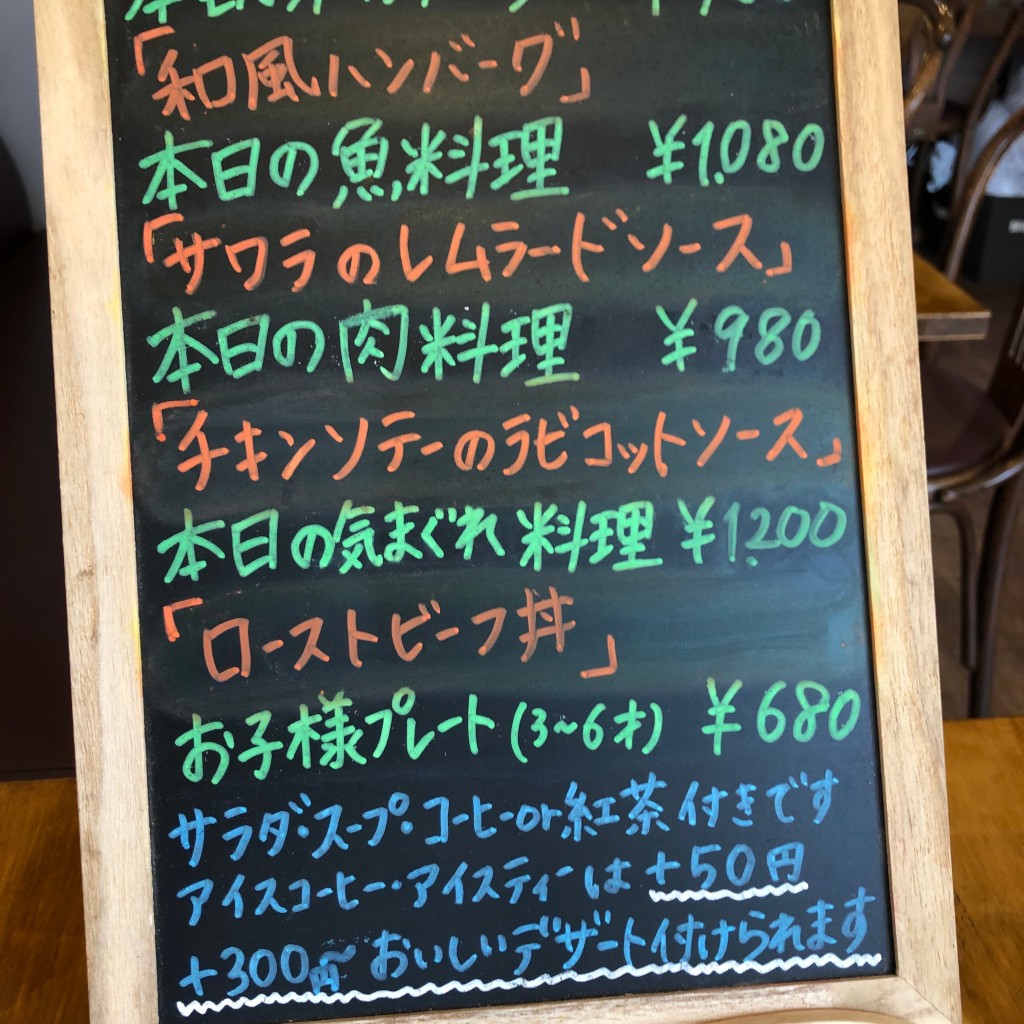 「和風ハンバーグ」
本日の魚料理 ¥1,080
「サワラのレムラードソース」
本日の肉料理 ¥980
「チキンソテーのラビコットソース」
本日の気まぐれ料理 ¥1,200
「ローストビーフ丼」
お子様プレート(3~6才) ¥680
サラダ・スープ・コーヒーor紅茶付きです
アイスコーヒー・アイスティーは+50円
+300円~おいしいデザート付けられます